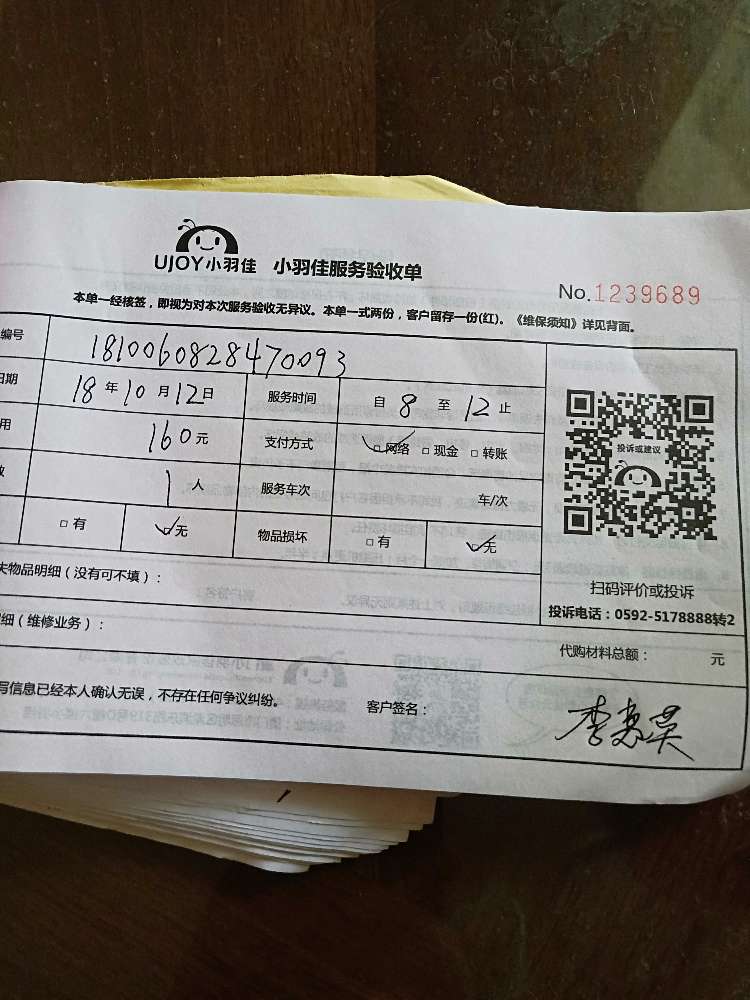 UJOY小羽佳 小羽佳服务验收单
No.1239689
本单一经核签，即视为对本次服务验收无异议。本单一式两份，客户留存一份(红)。《维保须知》详见背面。
编号 1810060828470093
日期 18年10月12日 服务时间 自8至12止
用 160元 支付方式 网络 现金 转账
1人 服务车次 车/次
有 无 物品损坏 有 无
投诉或建议
扫码评价或投诉
投诉电话：0592-5178888转2
失物品明细（没有可不填）：
细（维修业务）：
代购材料总额： 元
写信息已经本人确认无误，不存在任何争议纠纷。 客户签名：